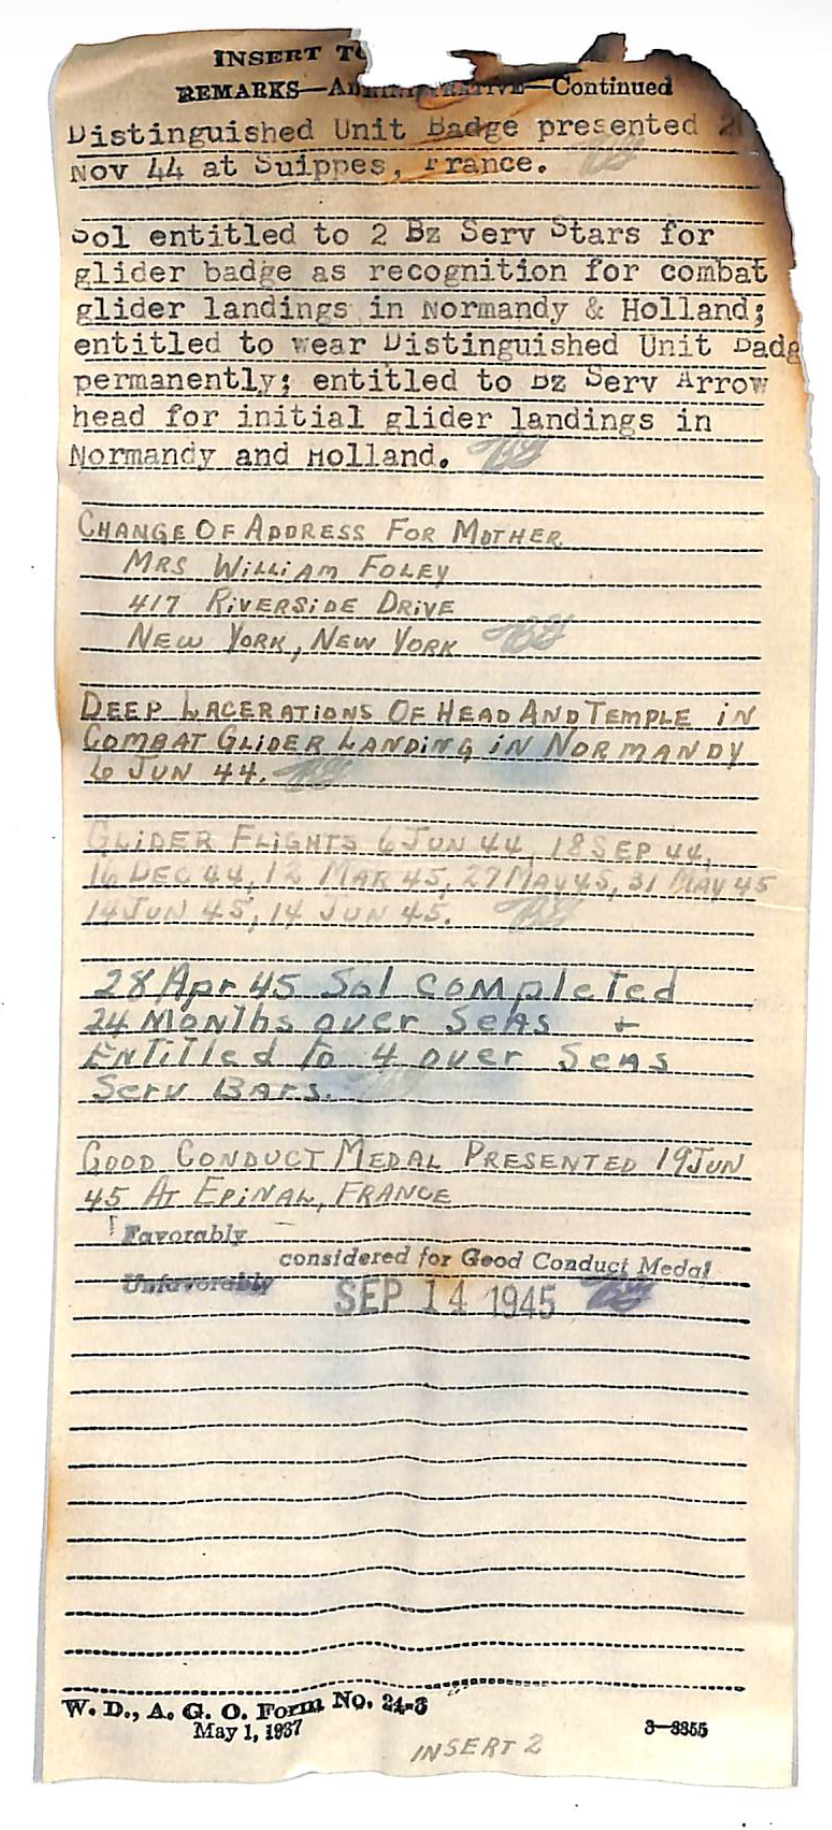 INSERT TO
REMARKS—ADMINISTRATIVE—Continued
Distinguished Unit Badge presented 2
Nov 44 at Suippes, France.
Sol entitled to 2 Bz Serv Stars for
glider badge as recognition for combat
glider landings in Normandy & Holland;
entitled to wear Distinguished Unit Badg
permanently; entitled to Bz Serv Arrow
head for initial glider landings in
Normandy and Holland.
CHANGE OF ADDRESS FOR MOTHER
MRS WILLIAM FOLEY
417 RIVERSIDE DRIVE
NEW YORK, NEW YORK
DEEP LACERATIONS OF HEAD AND TEMPLE IN
COMBAT GLIDER LANDING IN NORMANDY
6 JUN 44.
GLIDER FLIGHTS 6 JUN 44, 18 SEP 44,
16 DEC 44, 12 MAR 45, 27 MAY 45, 31 MAY 45
14 JUN 45, 14 JUN 45.
28 Apr 45 Sol completed
24 Months over Seas +
Entitled to 4 over Seas
Serv Bars.
GOOD CONDUCT MEDAL PRESENTED 19 JUN
45 AT EPINAL, FRANCE
Favorably
considered for Good Conduct Medal
Unfavorably
SEP 14 1945
W. D., A. G. O. Form No. 24-3
May 1, 1937
3—3355
INSERT 2